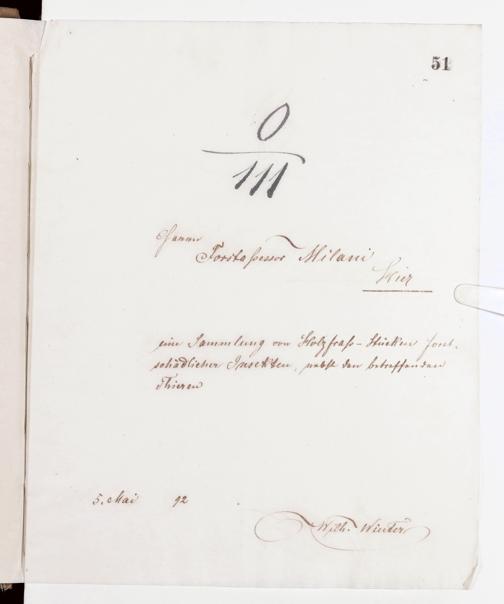 51
0
111
Herrn
Forstassessor Milani
Hier
eine Sammlung von Holzfraß-Stücken forst-
schädlicher Insekten, nebst den betreffenden
Thieren
5. Mai 92
Wilh. Winter